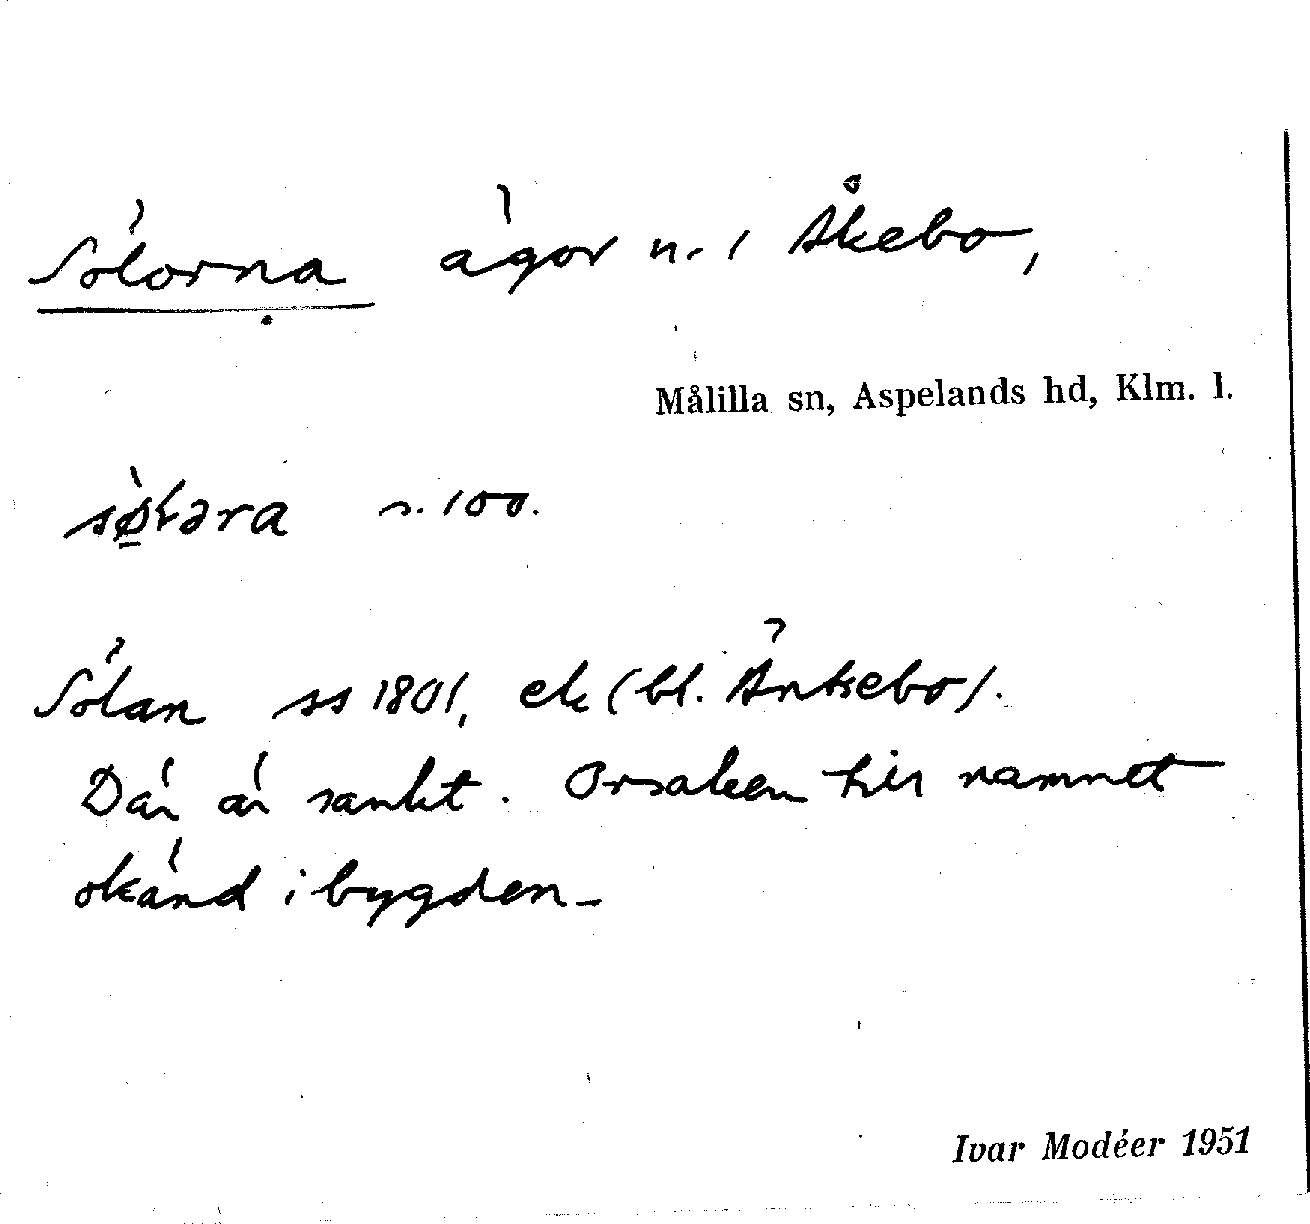 Sölorna ägor n. i Åkebo,
Målilla sn, Aspelands hd, Klm. l.
s. 100.
Sölan ss 1801, ek (bl. Änkebo).
Där är sankt. Orsaken till namnet
okänd i bygden.
Ivar Modéer 1951